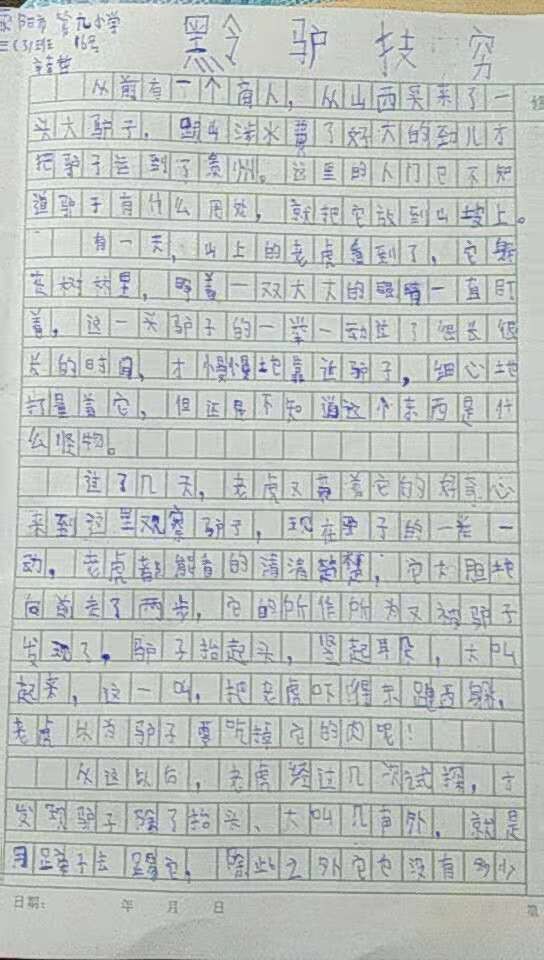 阳市第九小学
三(3)班 16号
黔驴技穷
从前有一个商人，从山西买来了一
头大驴子，跋山涉水费了好大的劲儿才
把驴子运到了贵州。这里的人们也不知
道驴子有什么用处，就把它放到山坡上。
有一天，山上的老虎看到了，它躲
在树林里，睁着一双大大的眼睛一直盯
着，这一头驴子的一举一动过了很长很
长的时间，才慢慢地靠近驴子，细心地
打量着它，但还是不知道这个东西是什
么怪物。
过了几天，老虎又带着它的好奇心
来到这里观察驴子，现在驴子的一举一
动，老虎都能看的清清楚楚，它大胆地
向前走了两步，它的所作所为又被驴子
发现了，驴子抬起头，竖起耳朵，大叫
起来，这一叫，把老虎吓得东躲西躲，
老虎以为驴子要吃掉它的肉呢！
从这以后，老虎经过几次试探，才
发现驴子除了抬头、大叫几声外，就是
用蹄子去踢它，除此之外它也没有多少
日期： 年 月 日